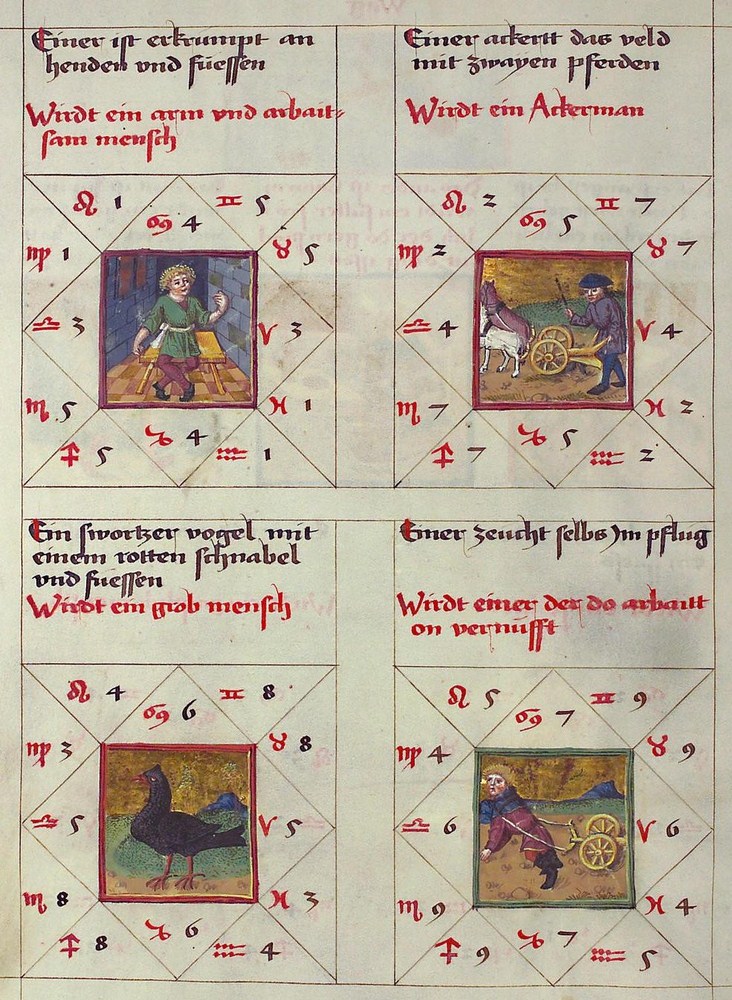 Einer ist erkrumpt an
henden vnd füessen
Wirdt ein arm vnd arbait-
sam mensch
♌ 1
♋ 4
♊ 5
♍ 1
♉ 5
♎ 3
♈ 3
♏ 5
♓ 1
♐ 5
♑ 4
♒ 1
Einer ackertt das veld
mit zwayen pferden
Wirdt ein Ackerman
♌ 2
♋ 5
♊ 7
♍ 2
♉ 7
♎ 4
♈ 4
♏ 7
♓ 2
♐ 7
♑ 5
♒ 2
Ein swortzer vogel mit
einem rotten schnabel
vnd fuessen
Wirdt ein grob mensch
♌ 4
♋ 6
♊ 8
♍ 3
♉ 8
♎ 5
♈ 5
♏ 8
♓ 3
♐ 8
♑ 6
♒ 4
Einer zeucht selbs Jm pflug
Wirdt einer der do arbaitt
on vernüfft
♌ 5
♋ 7
♊ 9
♍ 4
♉ 9
♎ 6
♈ 6
♏ 9
♓ 4
♐ 9
♑ 7
♒ 5